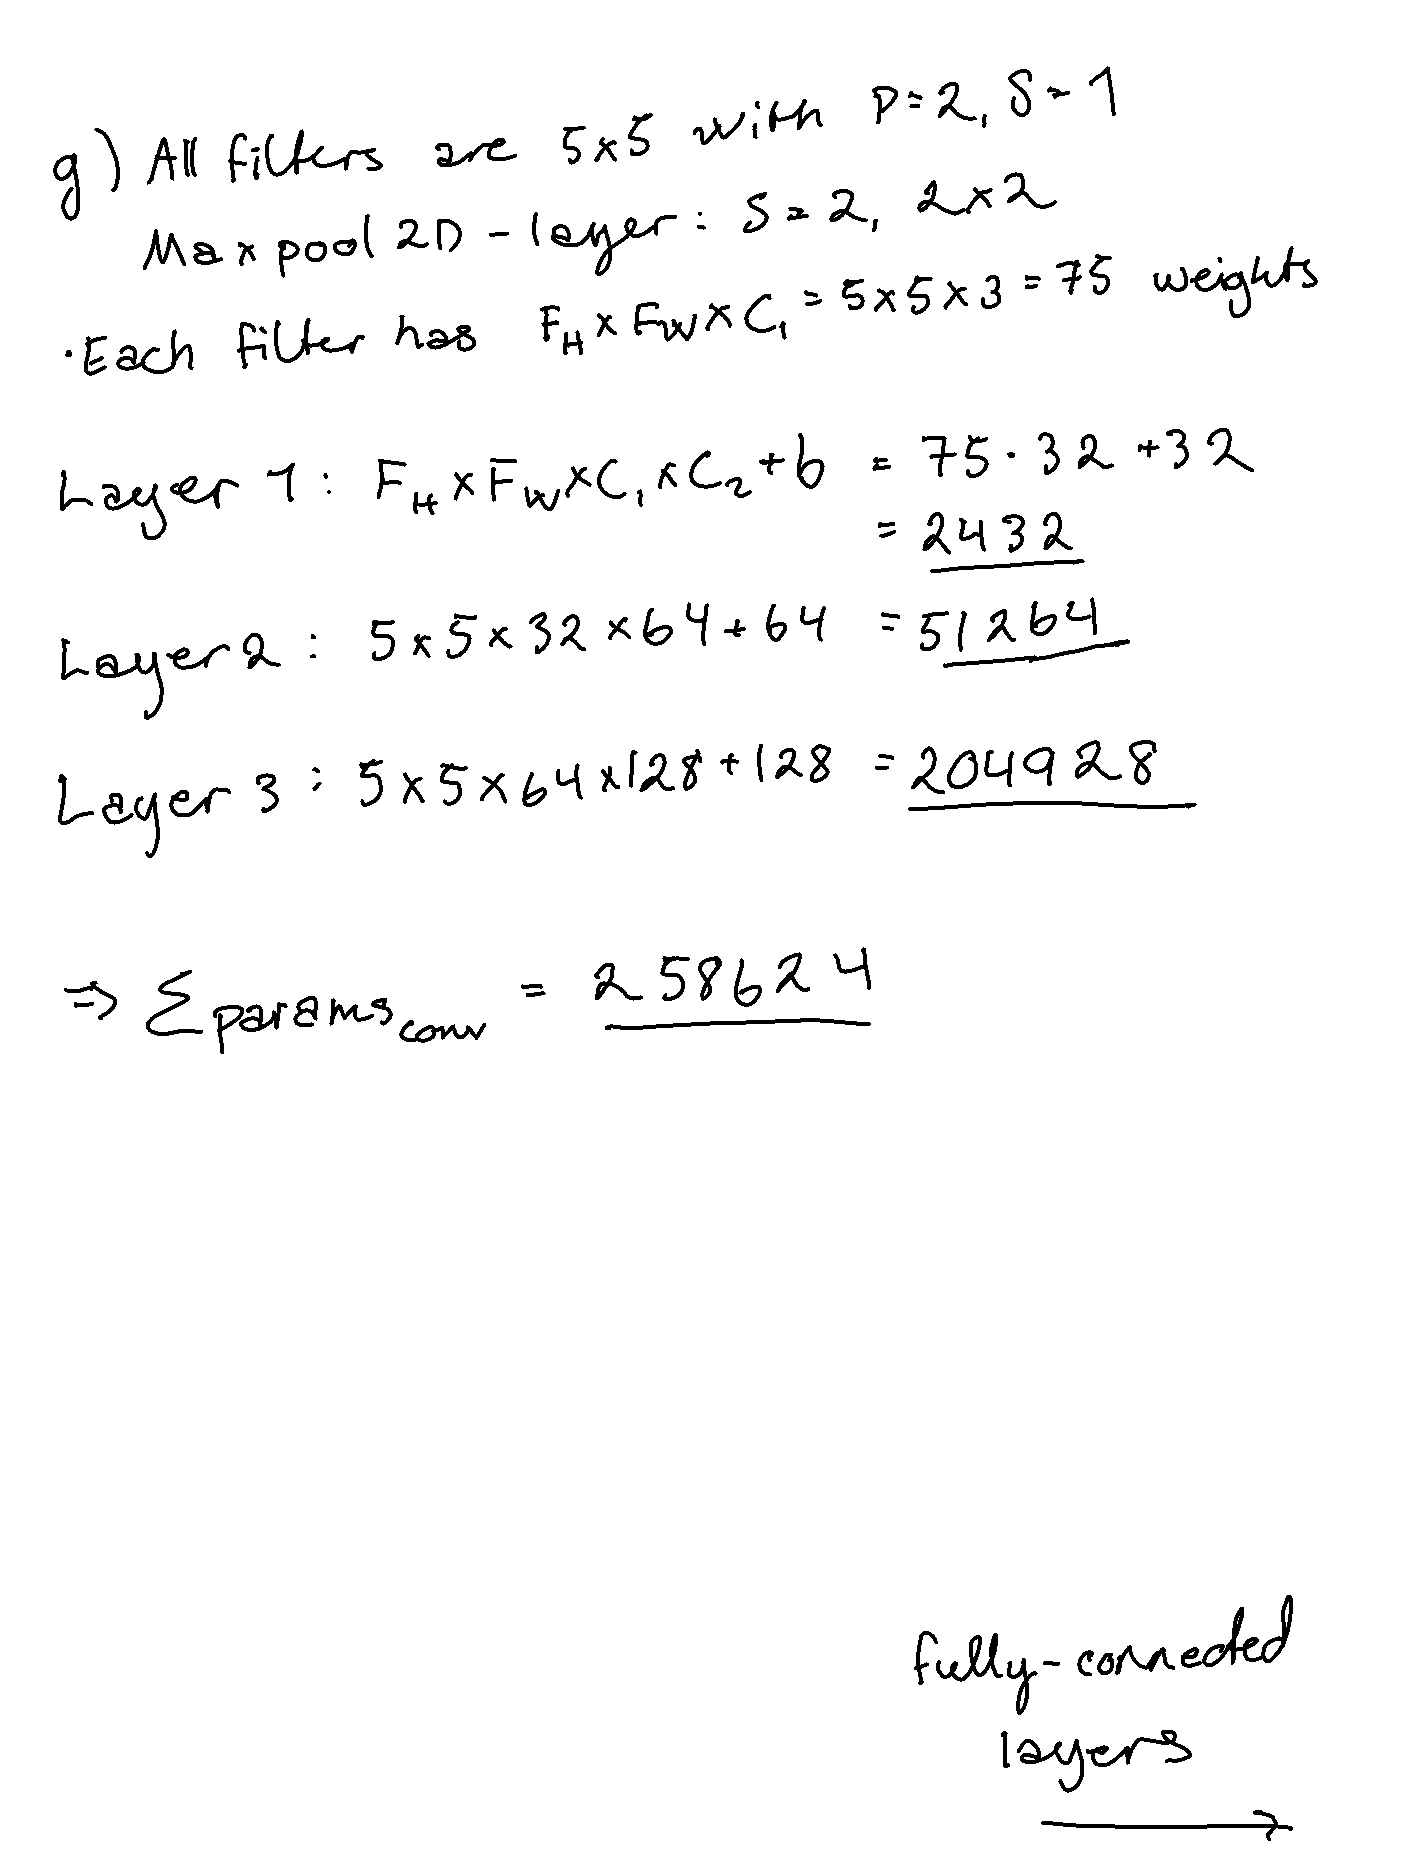 g) All filters are 5x5 with P=2, S=1
Maxpool 2D - layer: S=2, 2x2
· Each filter has F_H x F_W x C_1 = 5x5x3 = 75 weights
Layer 1: F_H x F_W x C_1 x C_2 + b = 75·32 +32
= 2432
Layer 2: 5x5x32x64+64 = 51264
Layer 3: 5x5x64x128+128 = 204928
⇒ Σ params_conv = 258624
fully-connected
layers
→